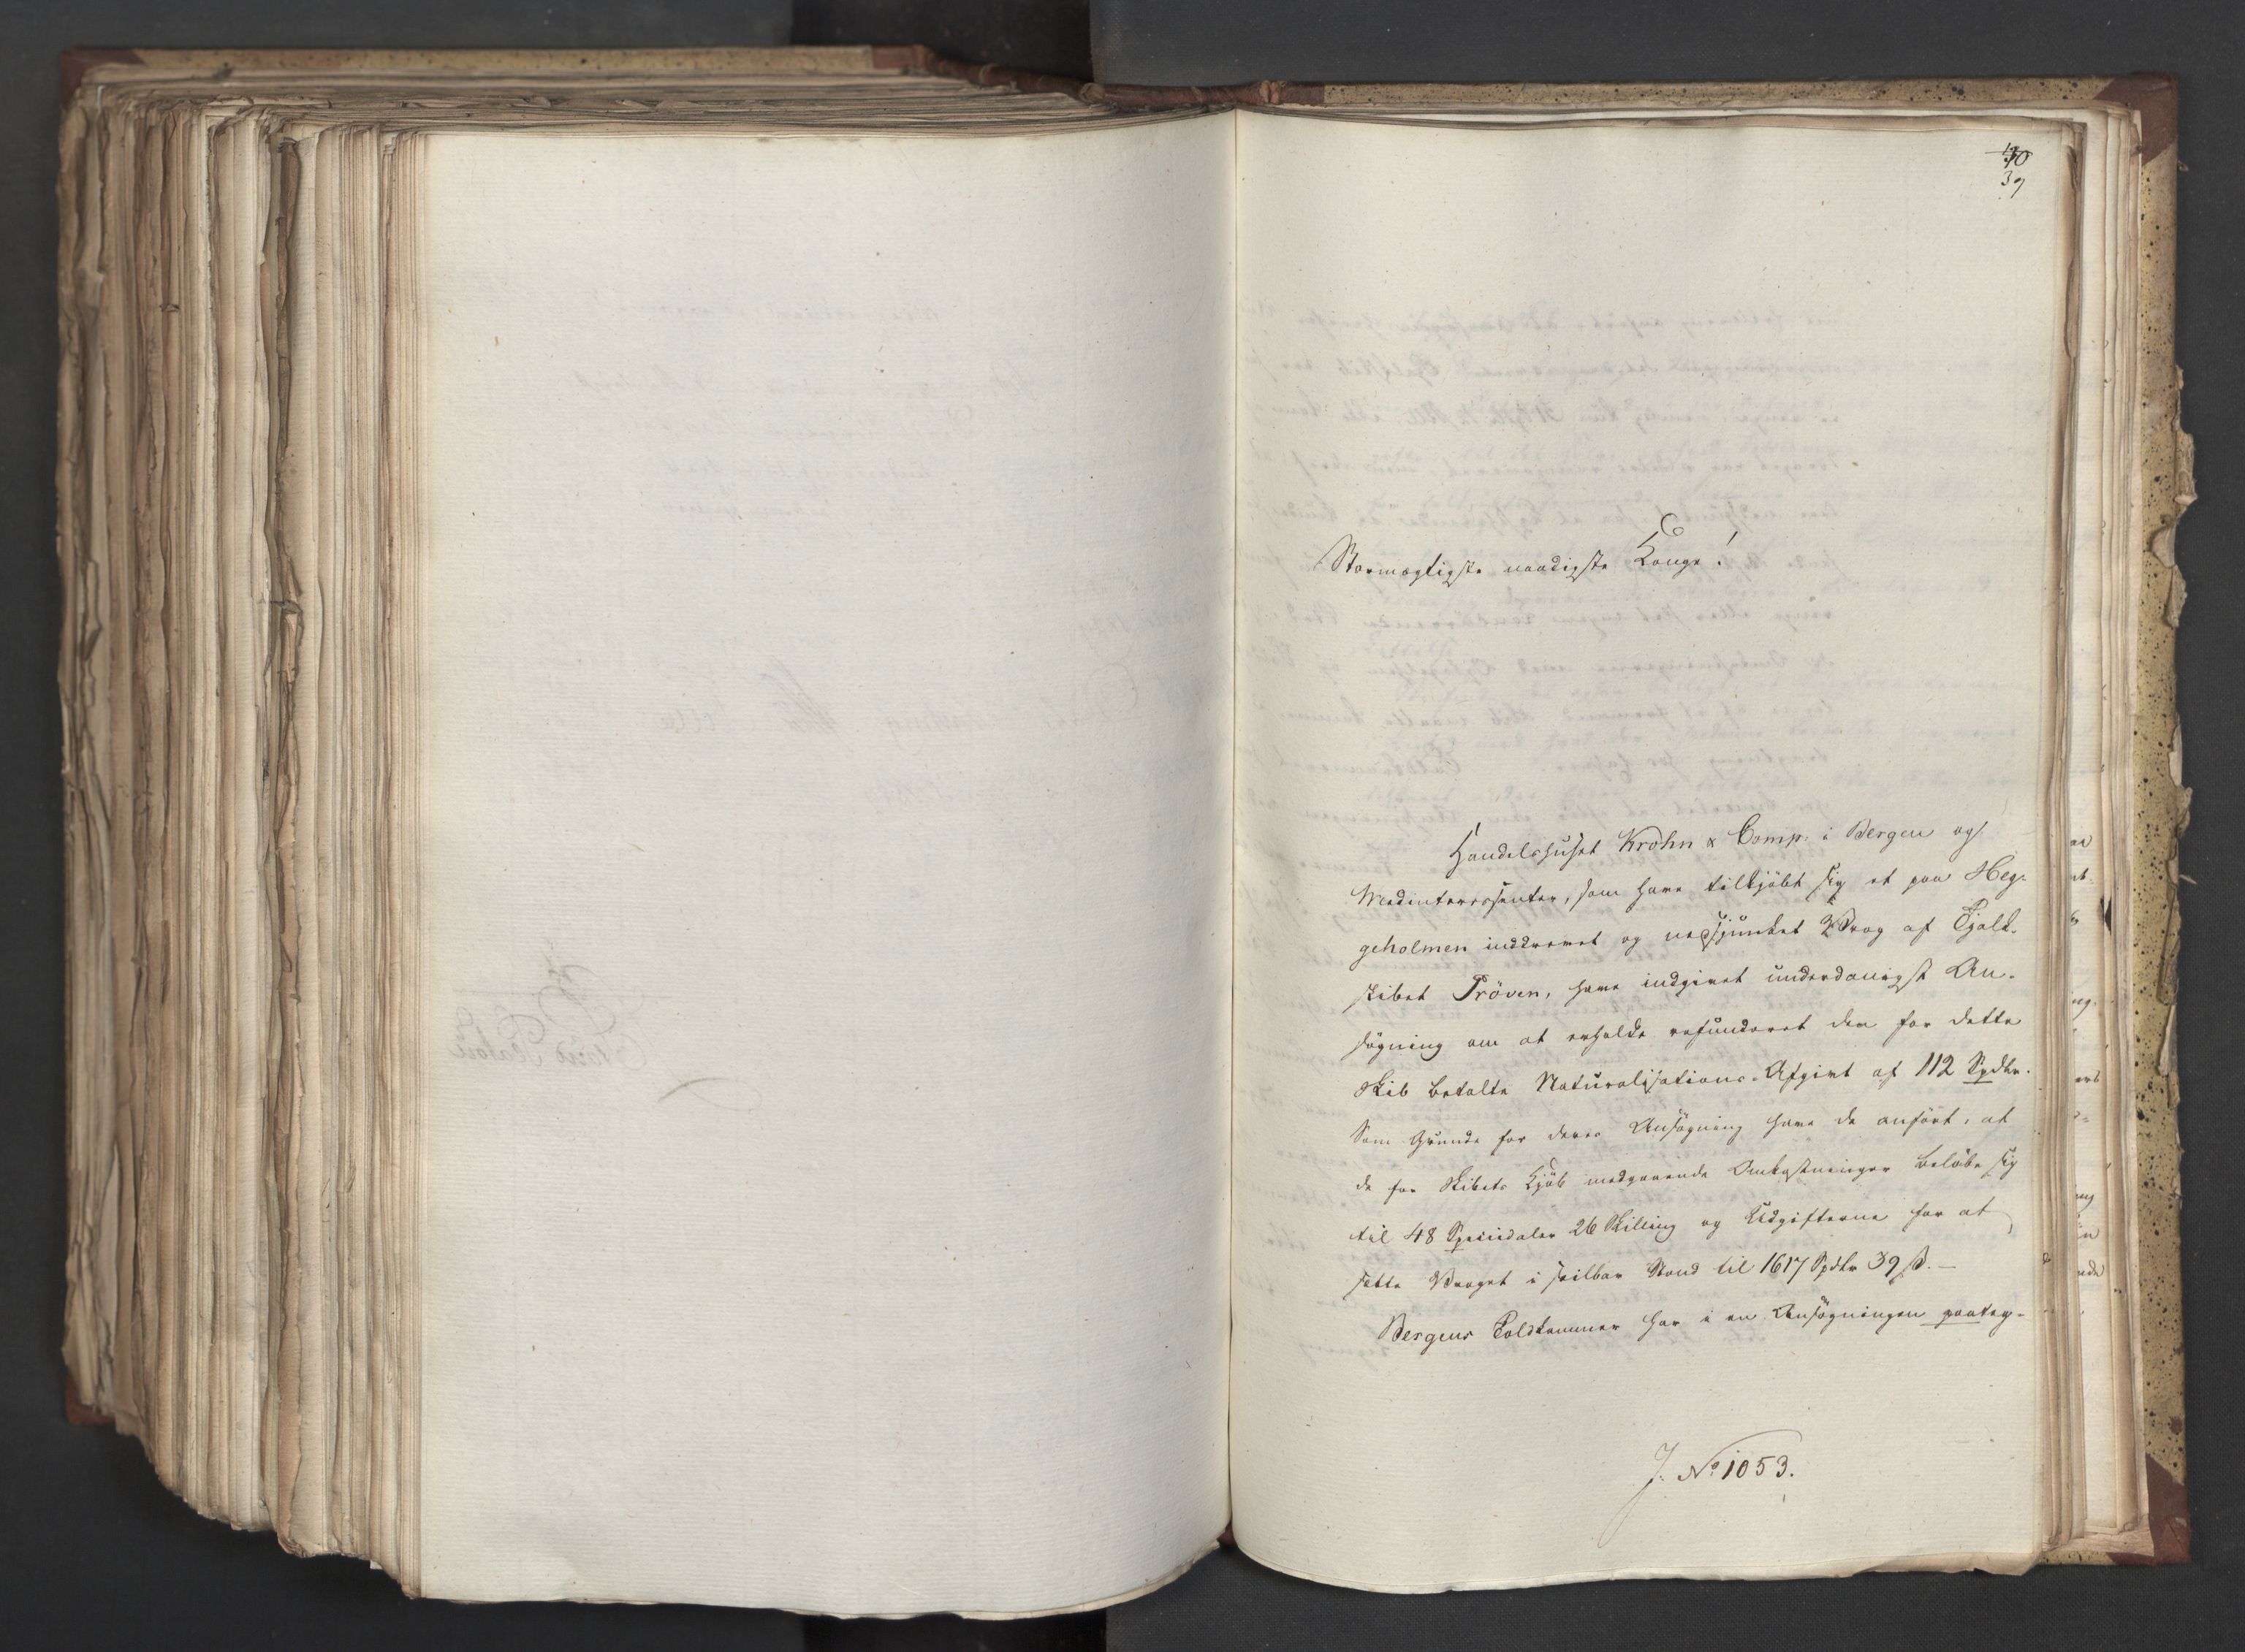 39
Stormægtigste naadigste Konge!
Handelshuset Krohn & Comp. i Bergen og
Medinteressenter, som have tilkjöbt sig et paa Heg-
geholmen inddrevet og nedsjunket Vrag af Tjalk-
skibet Pröven, have indgivet underdanigst An-
søgning om at erholde refunderet den for dette
Skib betalte Naturalisations-Afgivt af 112 Spdlr.
Som Grunde for deres Ansøgning have de anført, at
de for Skibets Kjöb medgaaende Omkostninger beløbe sig
til 48 Speciedaler 26 Skilling og Udgifterne for at
sætte Vraget i seilbar Stand til 1617 Spdlr 39 ß.-
Bergens Toldkammer har i en Ansøgningen paateg-
J. No 1053.